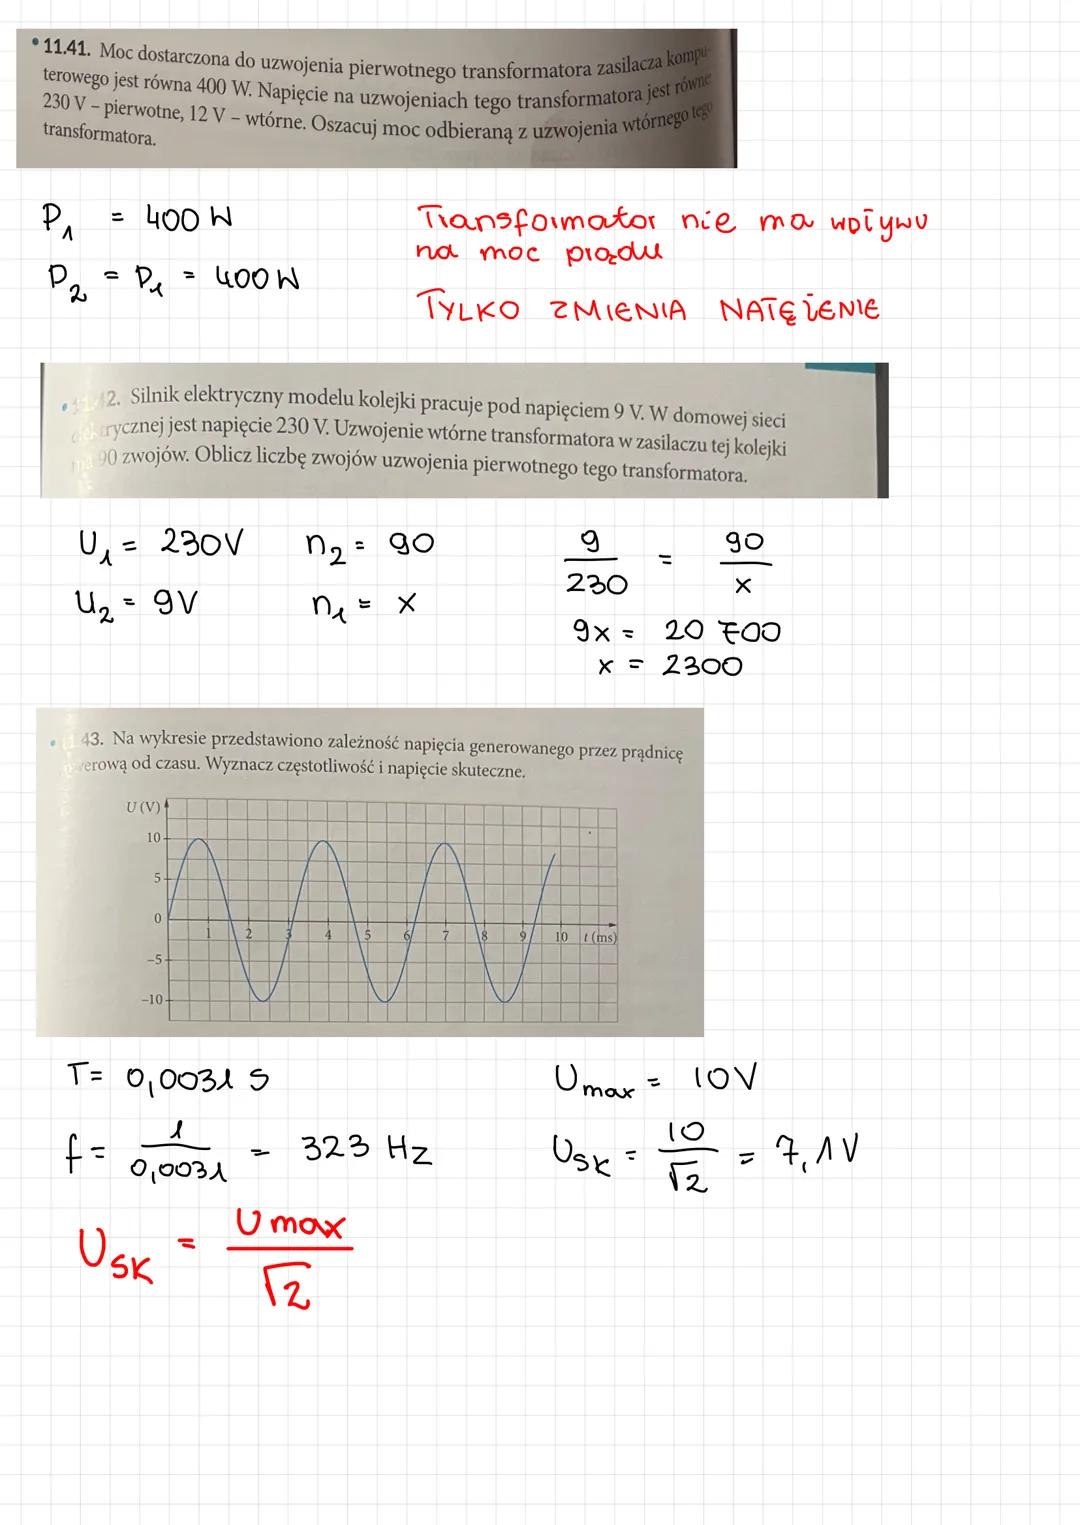 11.41. Moc dostarczona do uzwojenia pierwotnego transformatora zasilacza kompu-
terowego jest równa 400 W. Napięcie na uzwojeniach tego transformatora jest równe
230 V – pierwotne, 12 V – wtórne. Oszacuj moc odbieraną z uzwojenia wtórnego tego
transformatora.
P₁ = 400 W
P₂ = P₁ = 400 W
Transformator nie ma wpływu
na moc prądu
TYLKO ZMIENIA NATĘŻENIE
12. Silnik elektryczny modelu kolejki pracuje pod napięciem 9 V. W domowej sieci
elektrycznej jest napięcie 230 V. Uzwojenie wtórne transformatora w zasilaczu tej kolejki
ma 90 zwojów. Oblicz liczbę zwojów uzwojenia pierwotnego tego transformatora.
U₁ = 230V n₂ = 90
U₂ = 9V n₁ = x
9/230 = 90/x
9x = 20 700
x = 2300
43. Na wykresie przedstawiono zależność napięcia generowanego przez prądnicę
rowerową od czasu. Wyznacz częstotliwość i napięcie skuteczne.
U (V)
10
5
0
-5
-10
1 2 3 4 5 6 7 8 9 10 t (ms)
T = 0,0031 s
Umax = 10V
f = 1/0,0031 = 323 Hz
Usk = 10/√2 = 7,1V
Usk = Umax/√2